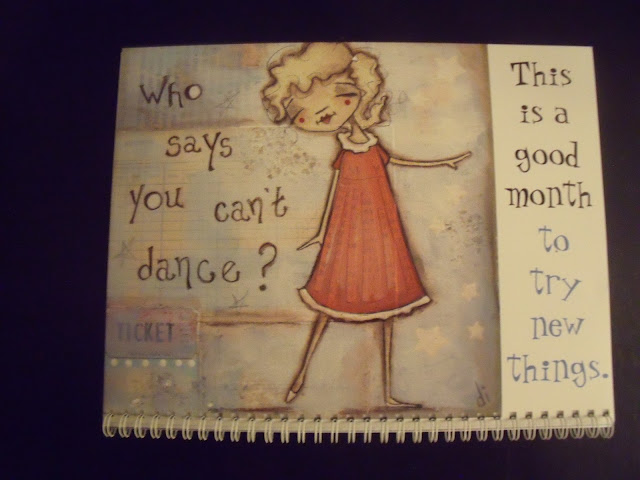 Who
says
you can't
dance?
TICKET
di
This
is a
good
month
to
try
new
things.